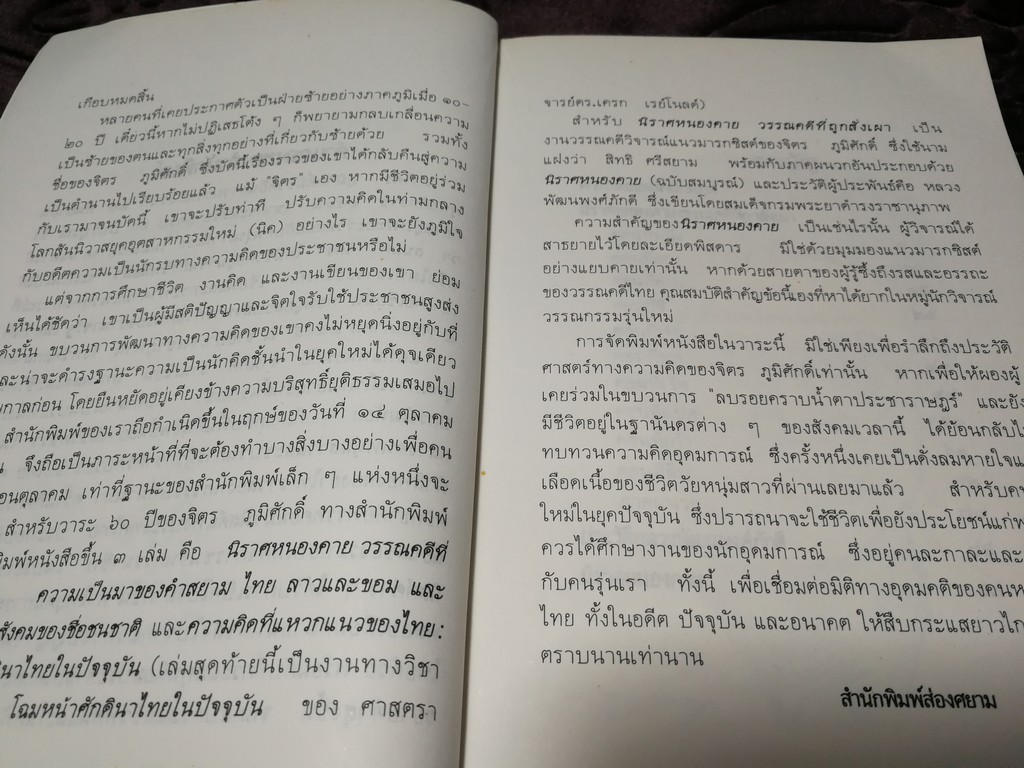 เกือบหมดสิ้น
หลายคนที่เคยประกาศตัวเป็นฝ่ายซ้ายอย่างภาคภูมิเมื่อ ๑๐-
๒๐ ปี เดี๋ยวนี้หากไม่ปฏิเสธโต้ง ๆ ก็พยายามกลบเกลื่อนความ
เป็นซ้ายของตนและทุกสิ่งทุกอย่างที่เกี่ยวกับซ้ายด้วย รวมทั้ง
ชื่อของจิตร ภูมิศักดิ์ ซึ่งบัดนี้เรื่องราวของเขาได้กลับคืนสู่ความ
เป็นตำนานไปเรียบร้อยแล้ว แม้ "จิตร" เอง หากมีชีวิตอยู่ร่วม
กับเรามาจนบัดนี้ เขาจะปรับท่าที ปรับความคิดในท่ามกลาง
โลกสันนิวาสยุคอุตสาหกรรมใหม่ (นิค) อย่างไร เขาจะยังภูมิใจ
กับอดีตความเป็นนักรบทางความคิดของประชาชนหรือไม่
แต่จากการศึกษาชีวิต งานคิด และงานเขียนของเขา ย่อม
เห็นได้ชัดว่า เขาเป็นผู้มีสติปัญญาและจิตใจรับใช้ประชาชนสูงส่ง
ดังนั้น ขบวนการพัฒนาทางความคิดของเขาคงไม่หยุดนิ่งอยู่กับที่
ละน่าจะดำรงฐานะความเป็นนักคิดชั้นนำในยุคใหม่ได้ดุจเดียว
กาลก่อน โดยยืนหยัดอยู่เคียงข้างความบริสุทธิ์ยุติธรรมเสมอไป
สำนักพิมพ์ของเราถือกำเนิดขึ้นในฤกษ์ของวันที่ ๑๔ ตุลาคม
จึงถือเป็นภาระหน้าที่ที่จะต้องทำบางสิ่งบางอย่างเพื่อคน
อนตุลาคม เท่าที่ฐานะของสำนักพิมพ์เล็ก ๆ แห่งหนึ่งจะ
สำหรับวาระ ๖๐ ปีของจิตร ภูมิศักดิ์ ทางสำนักพิมพ์
พิมพ์หนังสือขึ้น ๓ เล่ม คือ นิราศหนองคาย วรรณคดีที่
ความเป็นมาของคำสยาม ไทย ลาวและขอม และ
สังคมของชื่อชนชาติ และความคิดที่แหวกแนวของไทย:
นาไทยในปัจจุบัน (เล่มสุดท้ายนี้เป็นงานทางวิชา
โฉมหน้าศักดินาไทยในปัจจุบัน ของ ศาสตรา
จารย์ดร.เครก เรย์โนลด์)
สำหรับ นิราศหนองคาย วรรณคดีที่ถูกสั่งเผา เป็น
งานวรรณคดีวิจารณ์แนวมารกซิสต์ของจิตร ภูมิศักดิ์ ซึ่งใช้นาม
แฝงว่า สิทธิ ศรีสยาม พร้อมกับภาคผนวกอันประกอบด้วย
นิราศหนองคาย (ฉบับสมบูรณ์) และประวัติผู้ประพันธ์คือ หลวง
พัฒนพงศ์ภักดี ซึ่งเขียนโดยสมเด็จกรมพระยาดำรงราชานุภาพ
ความสำคัญของนิราศหนองคาย เป็นเช่นไรนั้น ผู้วิจารณ์ได้
สาธยายไว้โดยละเอียดพิสดาร มิใช่ด้วยมุมมองแนวมารกซิสต์
อย่างแยบคายเท่านั้น หากด้วยสายตาของผู้รู้ซึ้งถึงรสและอรรถะ
ของวรรณคดีไทย คุณสมบัติสำคัญข้อนี้เองที่หาได้ยากในหมู่นักวิจารณ์
วรรณกรรมรุ่นใหม่
การจัดพิมพ์หนังสือในวาระนี้ มิใช่เพียงเพื่อรำลึกถึงประวัติ
ศาสตร์ทางความคิดของจิตร ภูมิศักดิ์เท่านั้น หากเพื่อให้ผองผู้
เคยร่วมในขบวนการ "ลบรอยคราบน้ำตาประชาราษฎร์" และยัง
มีชีวิตอยู่ในฐานันดรต่าง ๆ ของสังคมเวลานี้ ได้ย้อนกลับไป
ทบทวนความคิดอุดมการณ์ ซึ่งครั้งหนึ่งเคยเป็นดั่งลมหายใจแ
เลือดเนื้อของชีวิตวัยหนุ่มสาวที่ผ่านเลยมาแล้ว สำหรับค
ใหม่ในยุคปัจจุบัน ซึ่งปรารถนาจะใช้ชีวิตเพื่อยังประโยชน์แก่
ควรได้ศึกษางานของนักอุดมการณ์ ซึ่งอยู่คนละกาละและ
กับคนรุ่นเรา ทั้งนี้ เพื่อเชื่อมต่อมิติทางอุดมคติของคน
ไทย ทั้งในอดีต ปัจจุบัน และอนาคต ให้สืบกระแสยาวไก
ตราบนานเท่านาน
สำนักพิมพ์ส่องศยาม